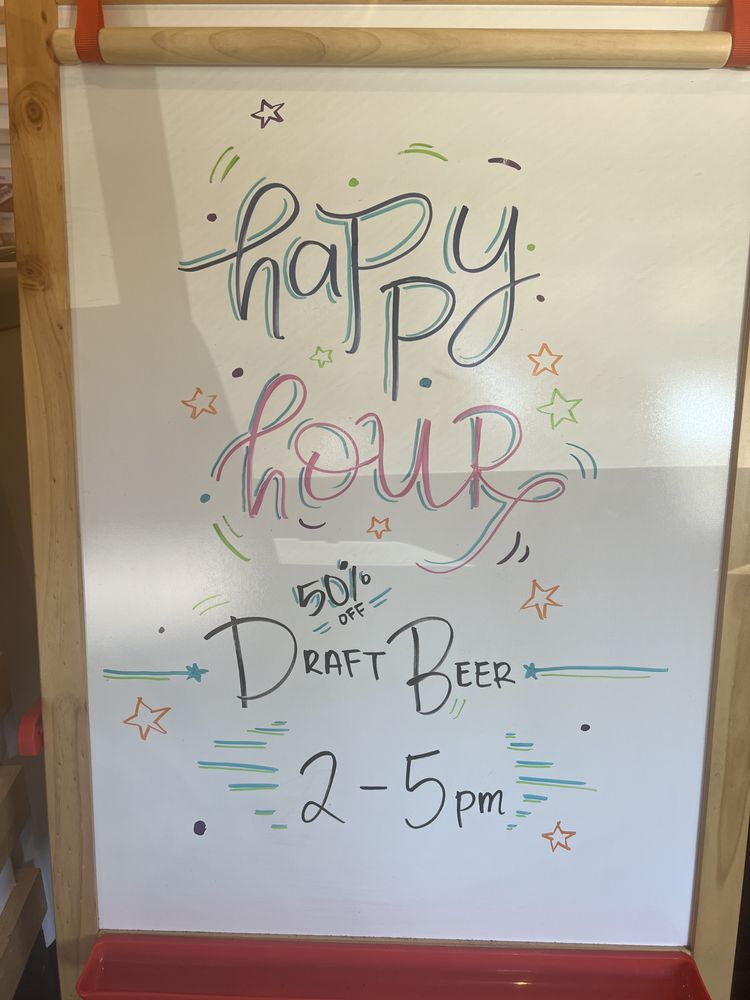 happy
hour
50%
OFF
DRAFT BEER
2-5pm